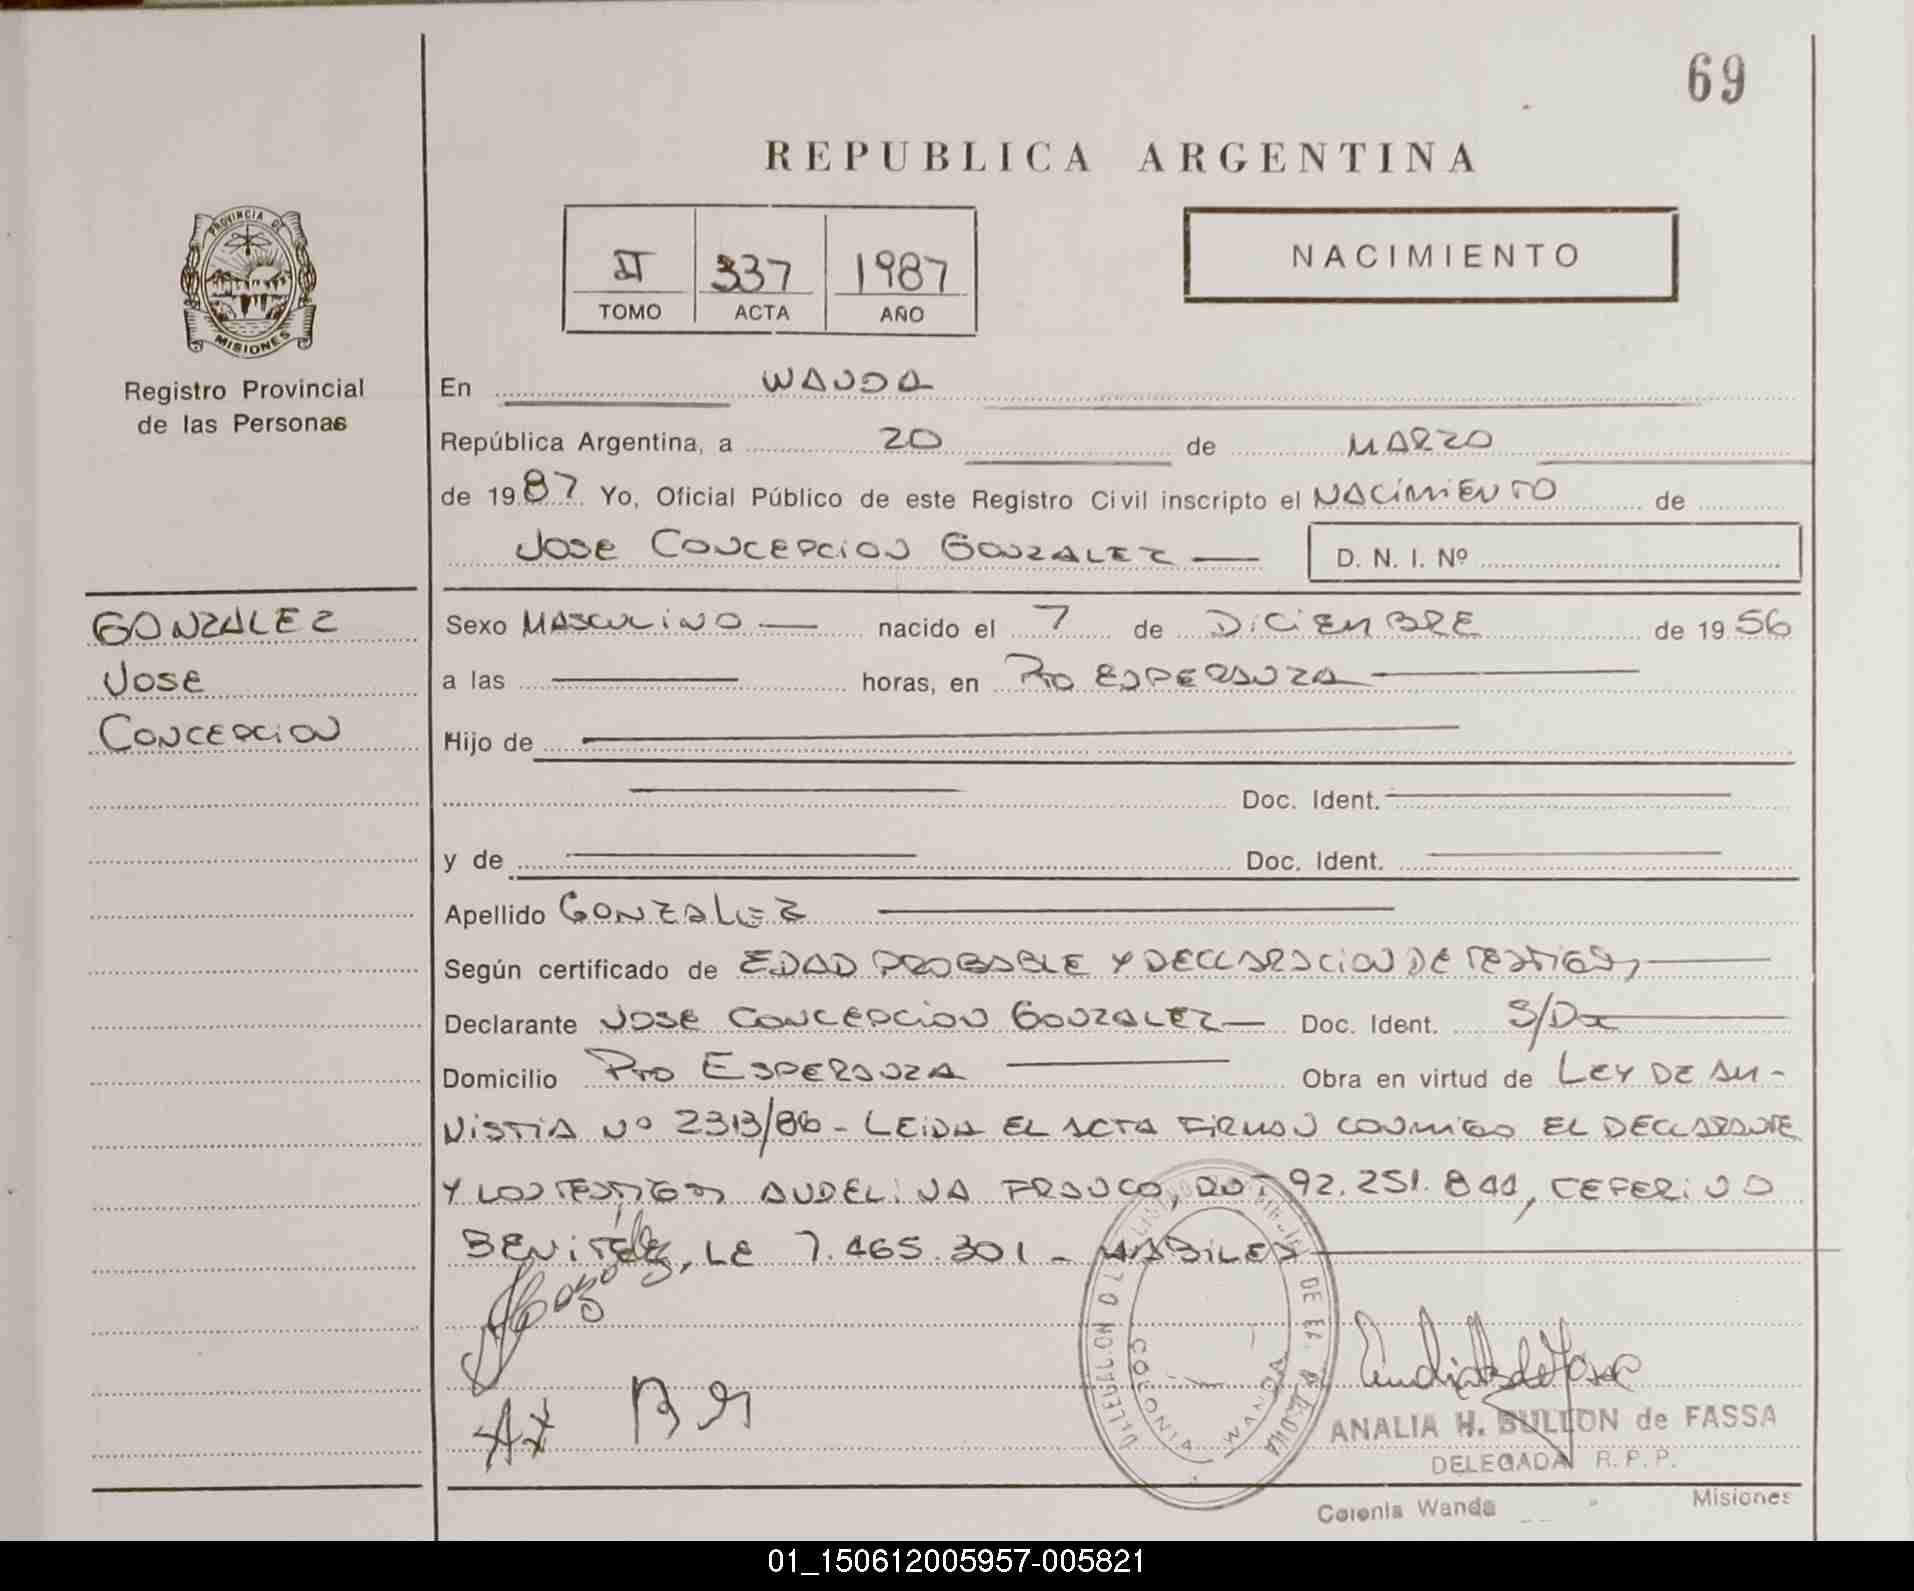 69
REPUBLICA ARGENTINA
PROVINCIA DE
MISIONES
Registro Provincial
de las Personas
II 337 1987
TOMO ACTA AÑO
NACIMIENTO
En WANDA
República Argentina, a 20 de MARZO
de 1987 Yo, Oficial Público de este Registro Civil inscripto el NACIMIENTO de
JOSE CONCEPCION GONZALEZ D. N. I. Nº
GONZALEZ
JOSE
CONCEPCION
Sexo MASCULINO nacido el 7 de DICIEMBRE de 1956
a las horas, en Pto ESPERANZA
Hijo de
Doc. Ident.
y de Doc. Ident.
Apellido GONZALEZ
Según certificado de EDAD PROBABLE Y DECLARACION DE TESTIGOS,
Declarante JOSE CONCEPCION GONZALEZ Doc. Ident. S/Doc
Domicilio Pto ESPERANZA Obra en virtud de LEY DE AM-
NISTIA Nº 2313/86 - LEIDA EL ACTA FIRMAN CONMIGO EL DECLARANTE
Y LOS TESTIGOS AUDELINA FRANCO, 92.251.811, CEFERINO
BENITEZ, LE 7.465.301 - HABILES
COLONIA WANDA
ANALIA H. BULLON de FASSA
DELEGADA R. P. P.
Colonia Wanda Misiones
01_150612005957-005821